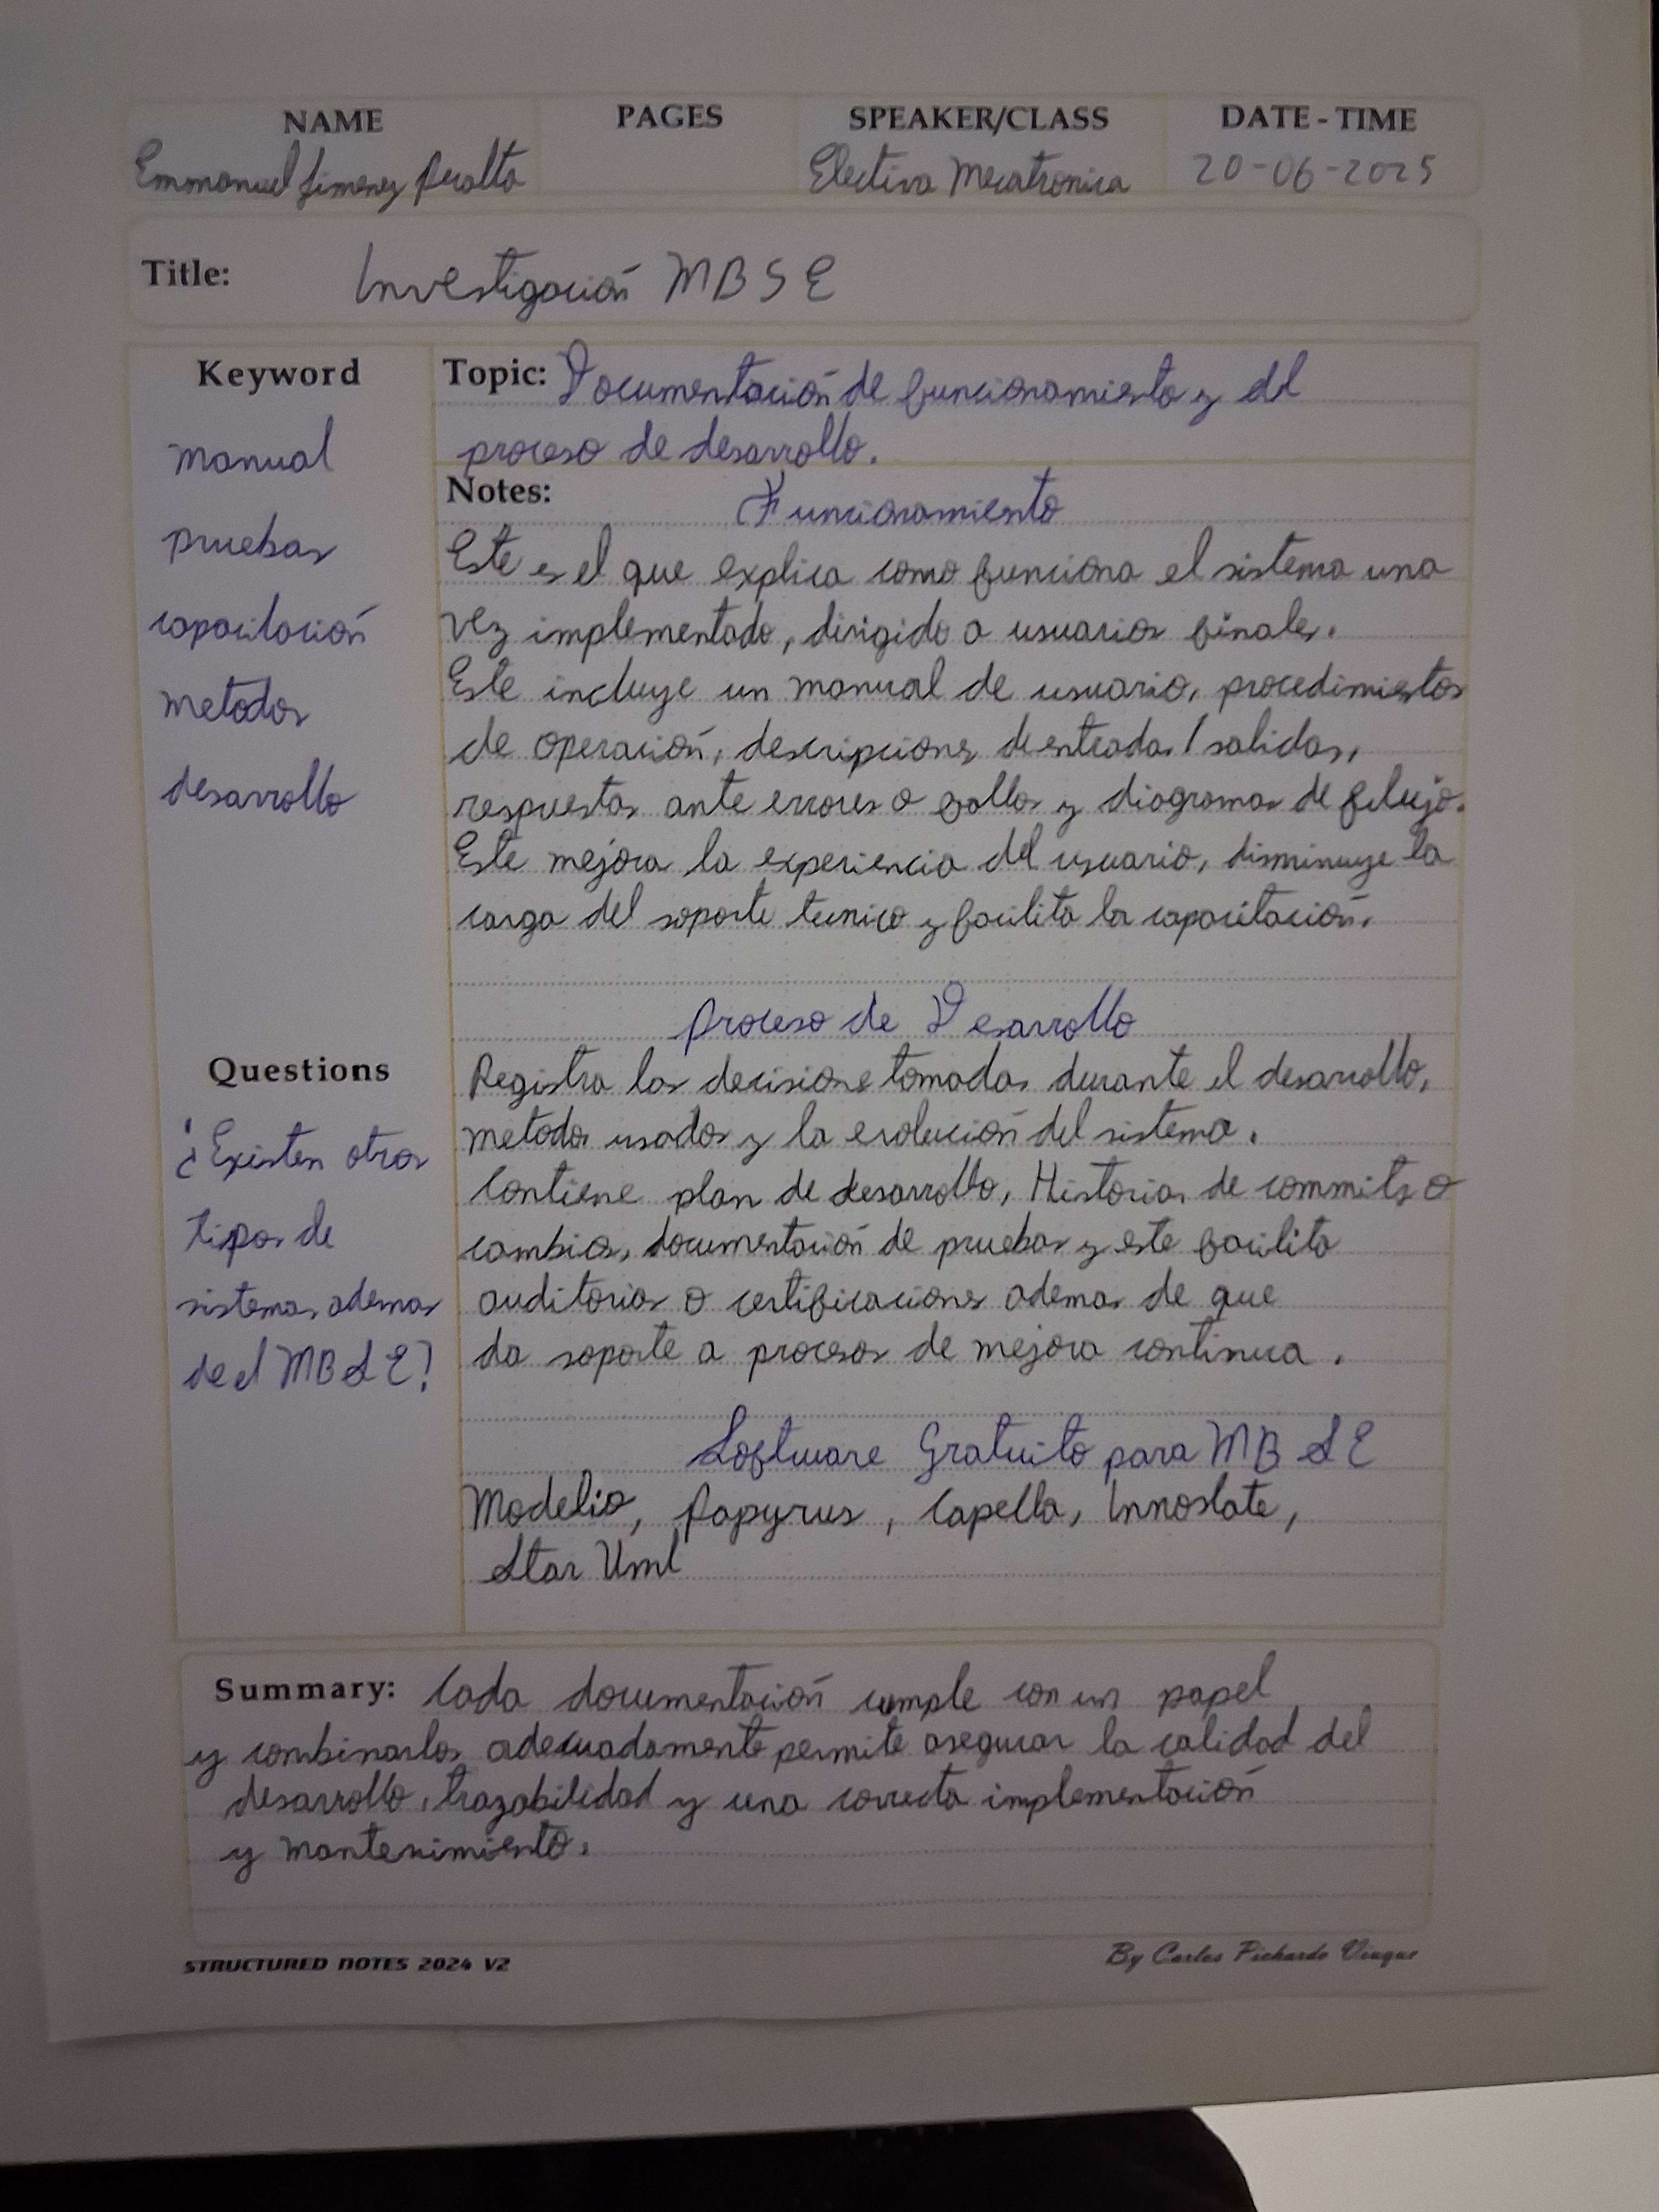 NAME PAGES SPEAKER/CLASS DATE - TIME
Emmanuel Jimenez Peralta Electiva Mecatronica 20-06-2025
Title: Investigación MBSE
Keyword
manual
pruebas
capacitación
metodos
desarrollo
Topic: Documentación de funcionamiento y del
proceso de desarrollo.
Notes: Funcionamiento
Este es el que explica como funciona el sistema una
vez implementado, dirigido a usuarios finales.
Este incluye un manual de usuario, procedimientos
de operación, descripciones de entradas / salidas,
respuestas ante errores o fallos y diagramas de flujo.
Este mejora la experiencia del usuario, disminuye la
carga del soporte tecnico y facilita la capacitación.
Proceso de Desarrollo
Registra las decisione tomadas durante el desarrollo,
metodos usados y la evolución del sistema.
Contiene plan de desarrollo, Historias de commits o
cambios, documentación de pruebas y este facilita
auditorias o certificaciones ademas de que
da soporte a procesos de mejora continua.
Software Gratuito para MBSE
Modelio, Papyrus, Capella, Innoslate,
Star Uml
Questions
¿Existen otros
tipos de
sistemas ademas
de el MBSE?
Summary: Cada documentación cumple con un papel
y combinarlos adecuadamente permite asegurar la calidad del
desarrollo, trazabilidad y una correcta implementación
y mantenimiento.
STRUCTURED NOTES 2024 V2 By Carlos Pichardo Viuque